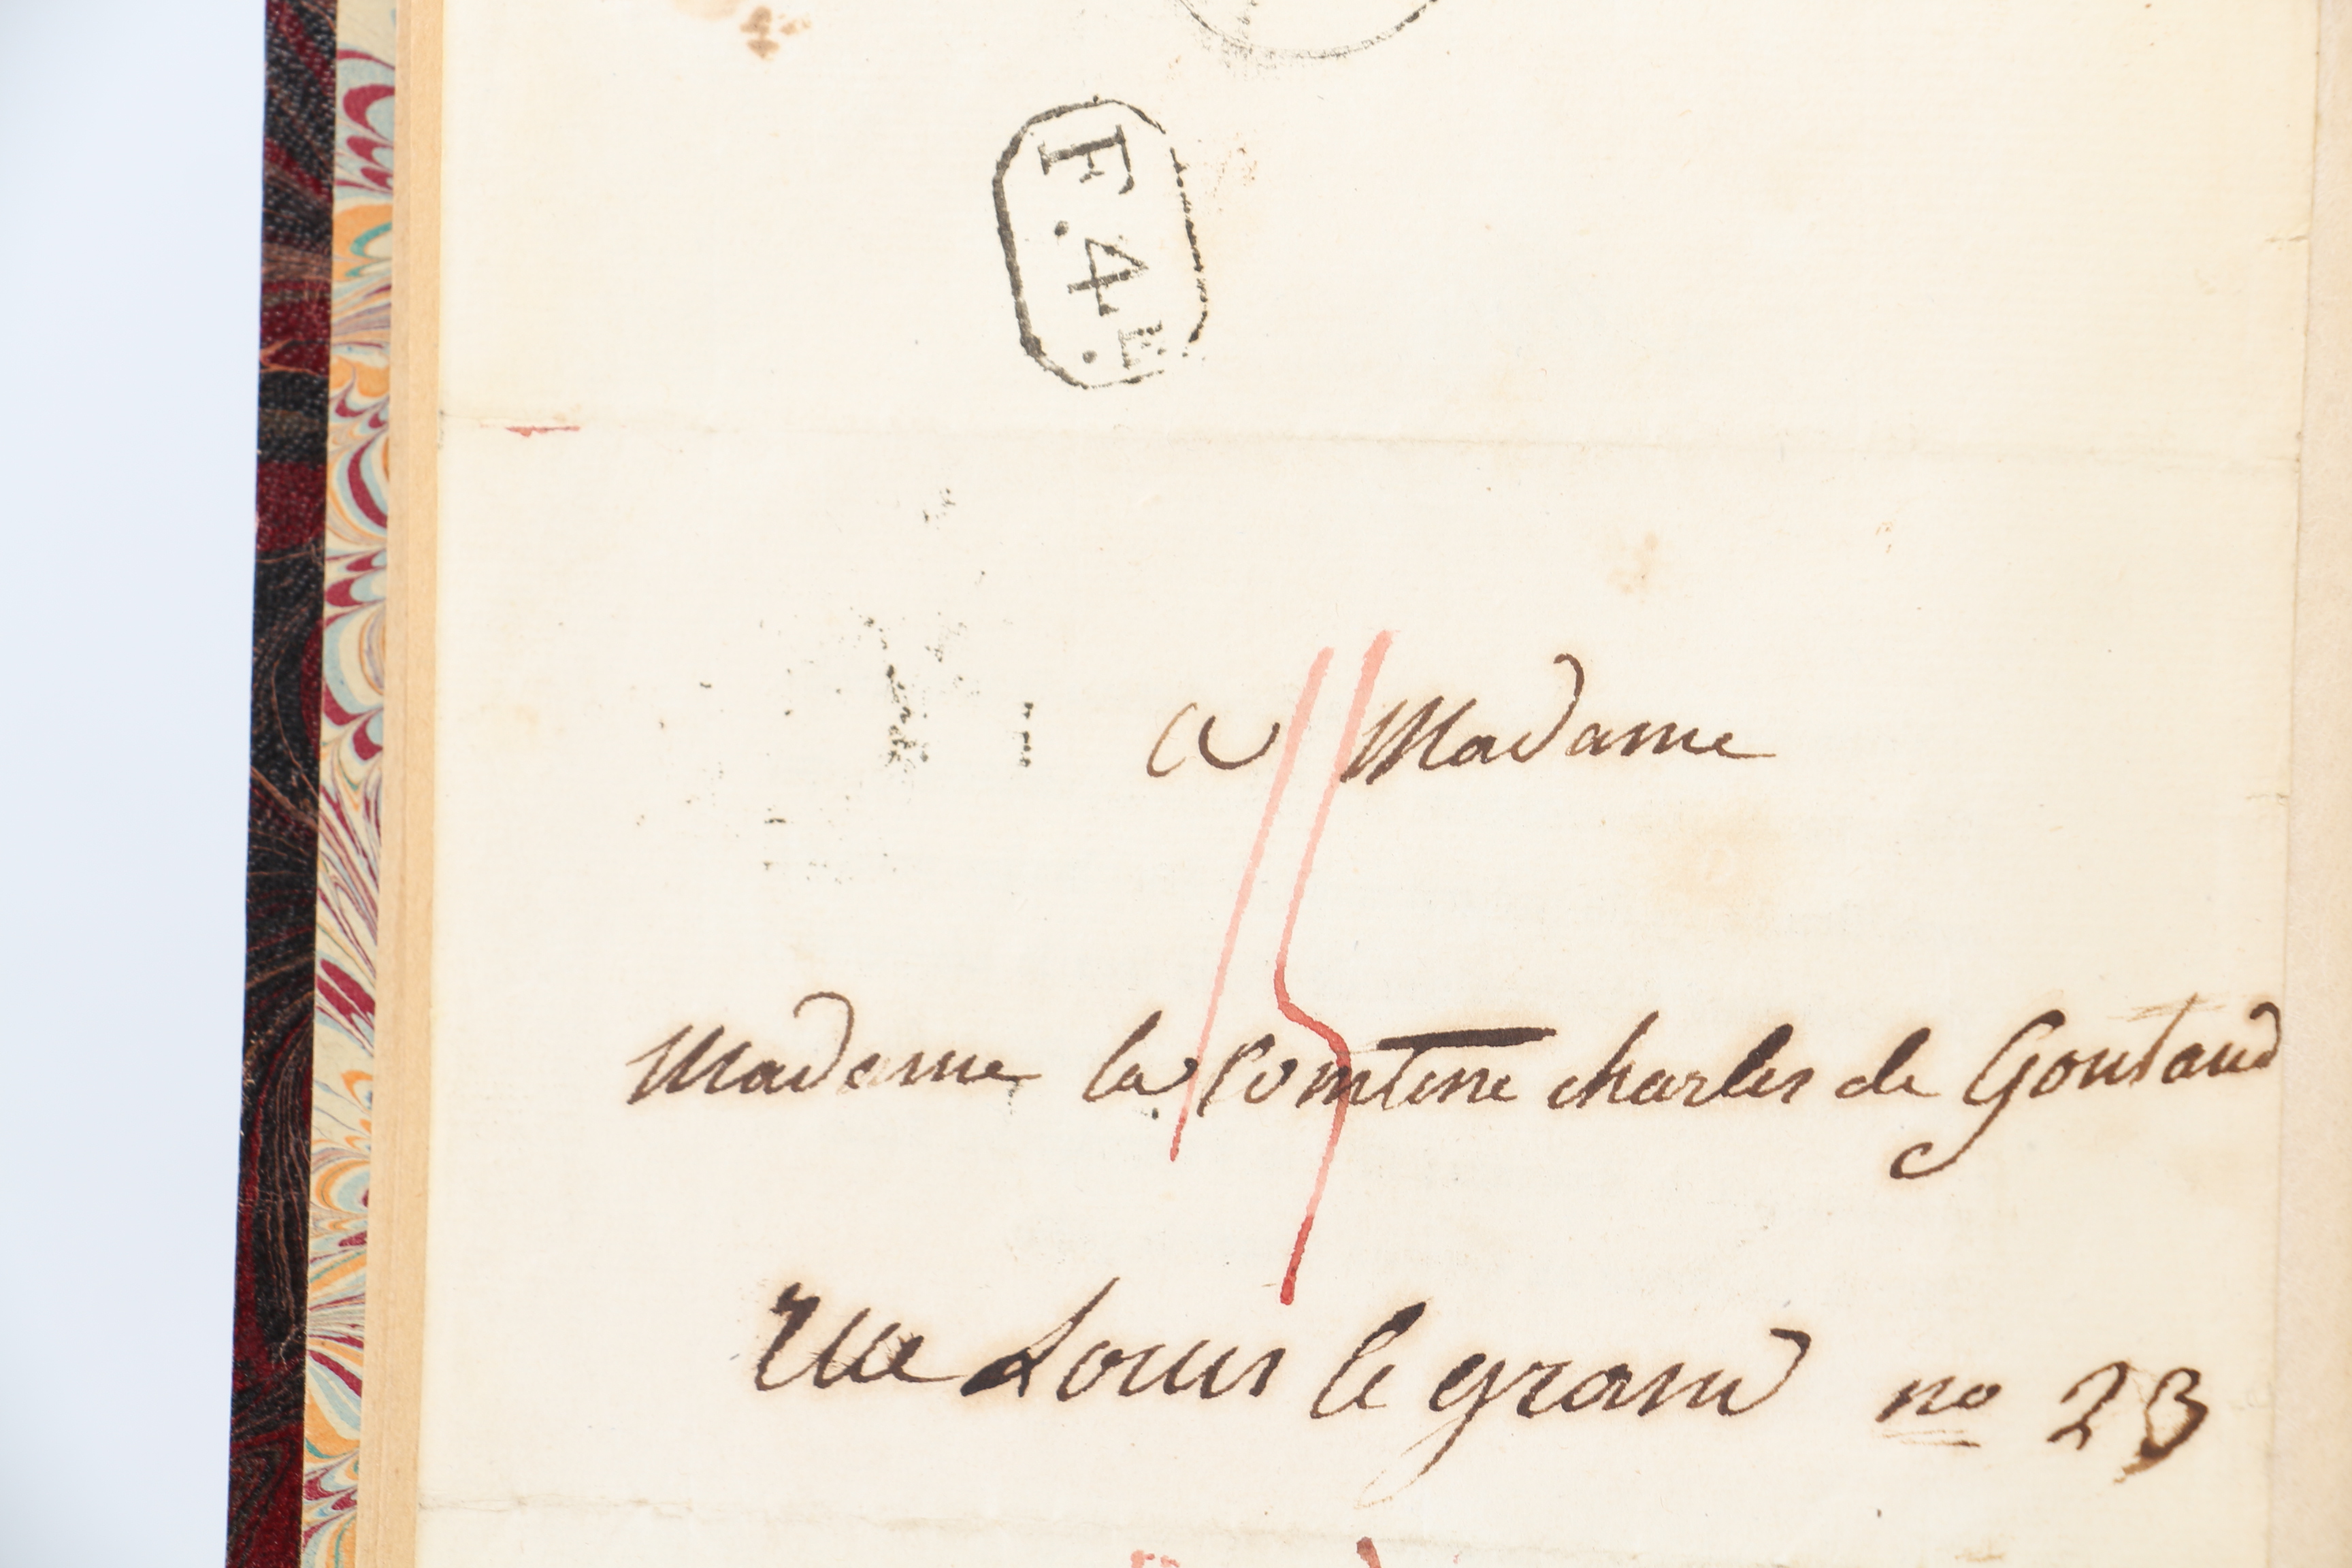 F.4.E
a Madame
Madame la Comtesse charles de Gontaud
rue Louis le grand no 23